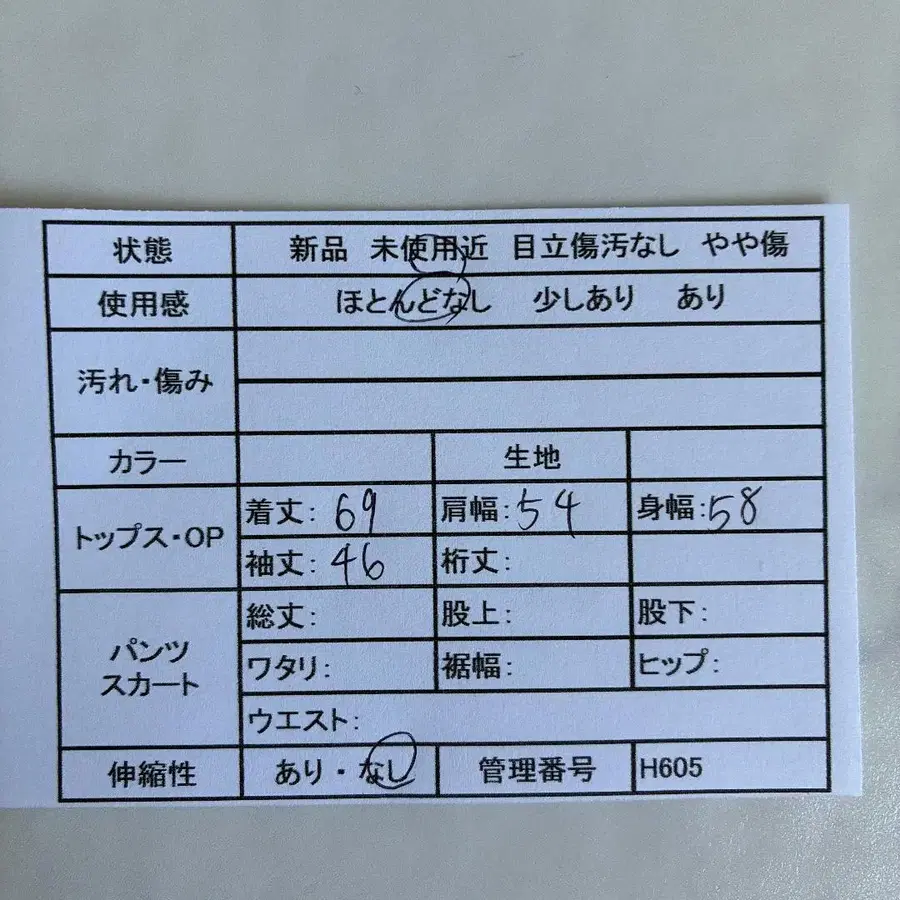 状態 新品 未使用近 目立傷汚なし やや傷
使用感 ほとんどなし 少しあり あり
汚れ・傷み
カラー 生地
トップス・OP 着丈: 69 肩幅: 54 身幅: 58
袖丈: 46 裄丈:
パンツ スカート 総丈: 股上: 股下:
ワタリ: 裾幅: ヒップ:
ウエスト:
伸縮性 あり・なし 管理番号 H605